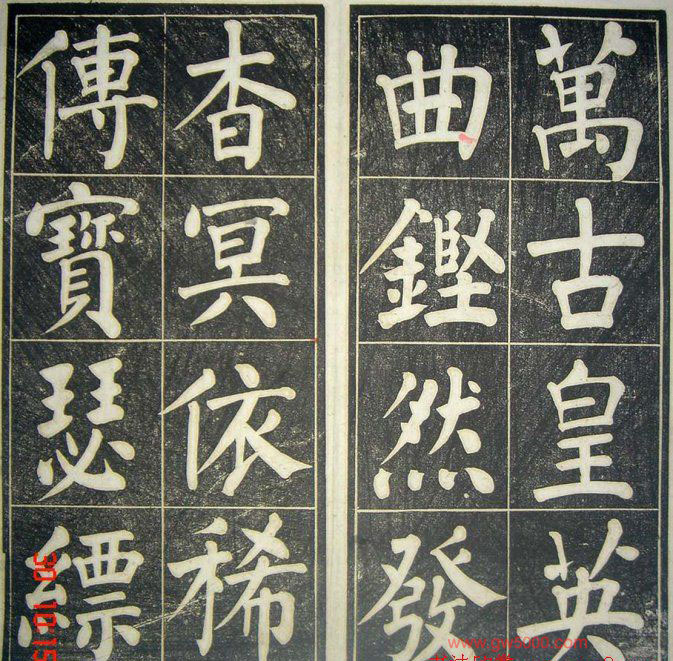 萬古皇英
曲鏗然發
杳冥依稀
傳寶瑟縹
30 10:15
www.gw5000.com